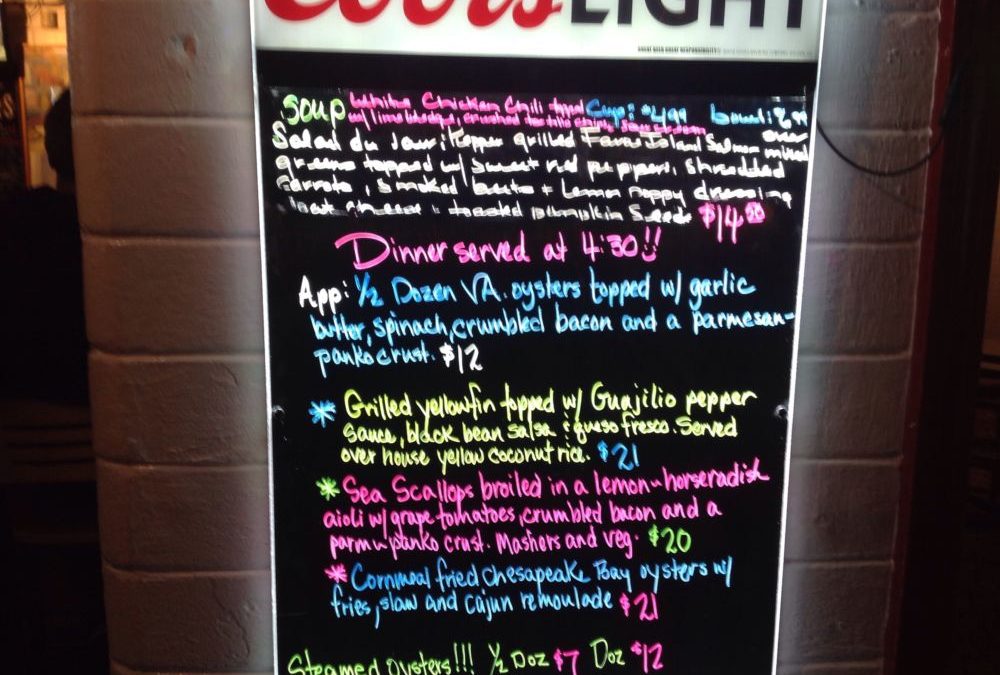 Coors LIGHT
GREAT BEER GREAT RESPONSIBILITY
Soup White Chicken Chili topped Cup: $4.99 bowl: 6.99
w/ lime wedge, crushed tortilla chips, sour cream
Salad du Jour: topper grilled Faroe Island Salmon over mixed
greens topped w/ sweet red peppers, shredded
carrots, smoked beets + Lemon Poppy dressing
goat cheese + toasted pumpkin Seeds $14.50
Dinner served at 4:30!!
App: 1/2 Dozen VA. oysters topped w/ garlic
butter, spinach, crumbled bacon and a parmesan-
panko crust. $12
* Grilled yellowfin topped w/ Guajilio pepper
sauce, black bean salsa & queso fresco. Served
over house yellow coconut rice. $21
* Sea Scallops broiled in a lemon-horseradish
aioli w/ grape tomatoes, crumbled bacon and a
parm-panko crust. Mashers and veg. $20
* Cornmeal fried Chesapeake Bay oysters w/
fries, slaw and cajun remoulade $21
Steamed oysters!!! 1/2 Doz $7 Doz $12